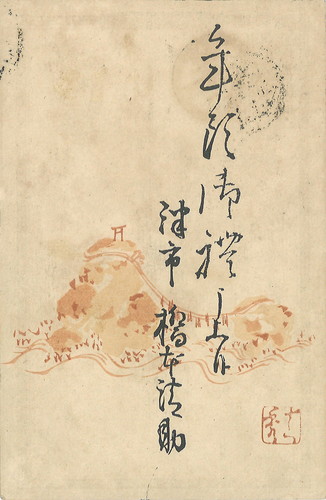 年頭御禮申上候
津市
橋本清助